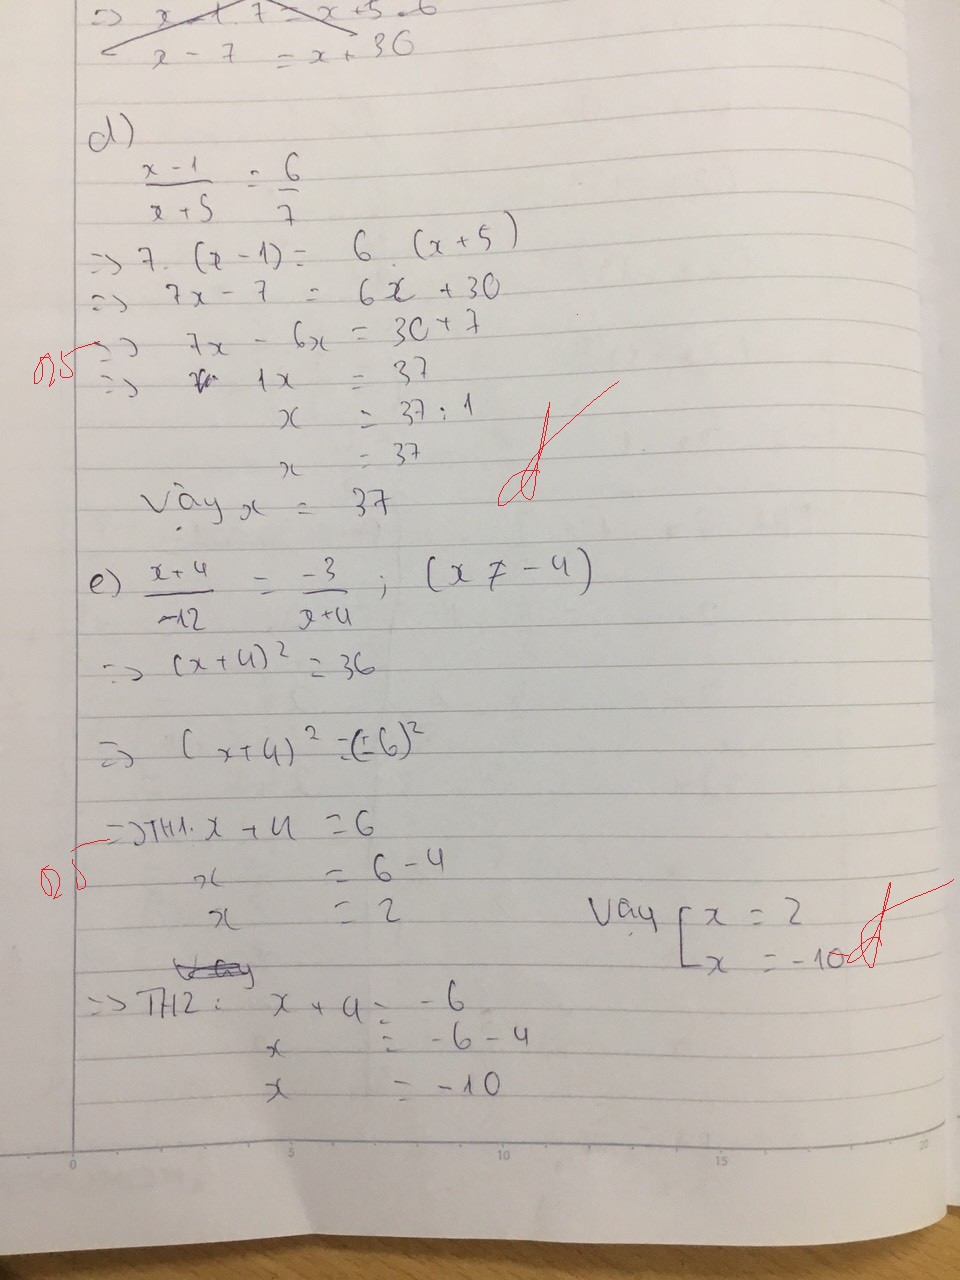 => x - 1 . 7 = x + 5 . 6
x - 7 = x + 36
d)
x - 1 / x + 5 = 6 / 7
=> 7. (x - 1) = 6 . (x + 5)
=> 7x - 7 = 6x + 30
=> 7x - 6x = 30 + 7
0,5
=> 1x = 37
x = 37 : 1
x = 37
đ
Vậy x = 37
e) x + 4 / -12 = -3 / x + 4 ; (x ≠ -4)
=> (x + 4)² = 36
=> (x + 4)² = (±6)²
=> TH1. x + 4 = 6
0,5
x = 6 - 4
x = 2
Vậy [ x = 2
x = -10 đ
=> TH2 : x + 4 = -6
x = -6 - 4
x = -10
0 5 10 15 20